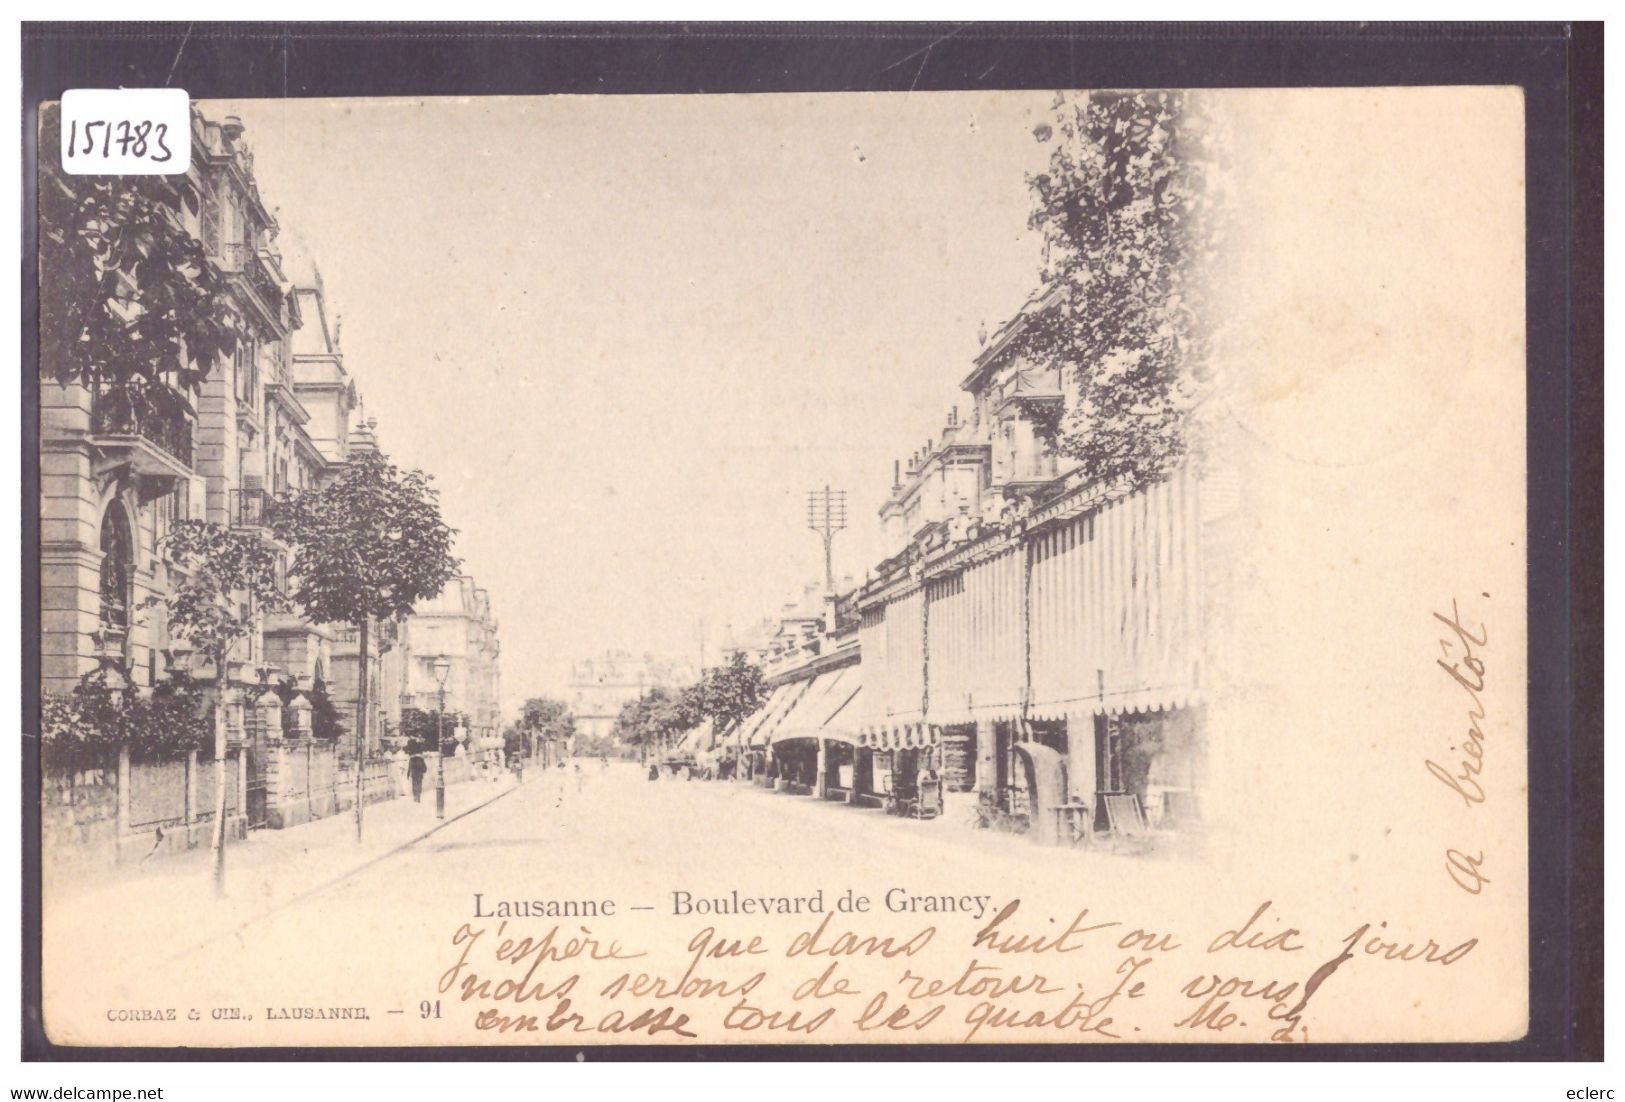 151783
Lausanne — Boulevard de Grancy.
J'espère que dans huit ou dix jours
nous serons de retour. Je vous
embrasse tous les quatre. M.
A bientôt.
CORBAZ & CIE., LAUSANNE. — 91
www.delcampe.net
eclerc